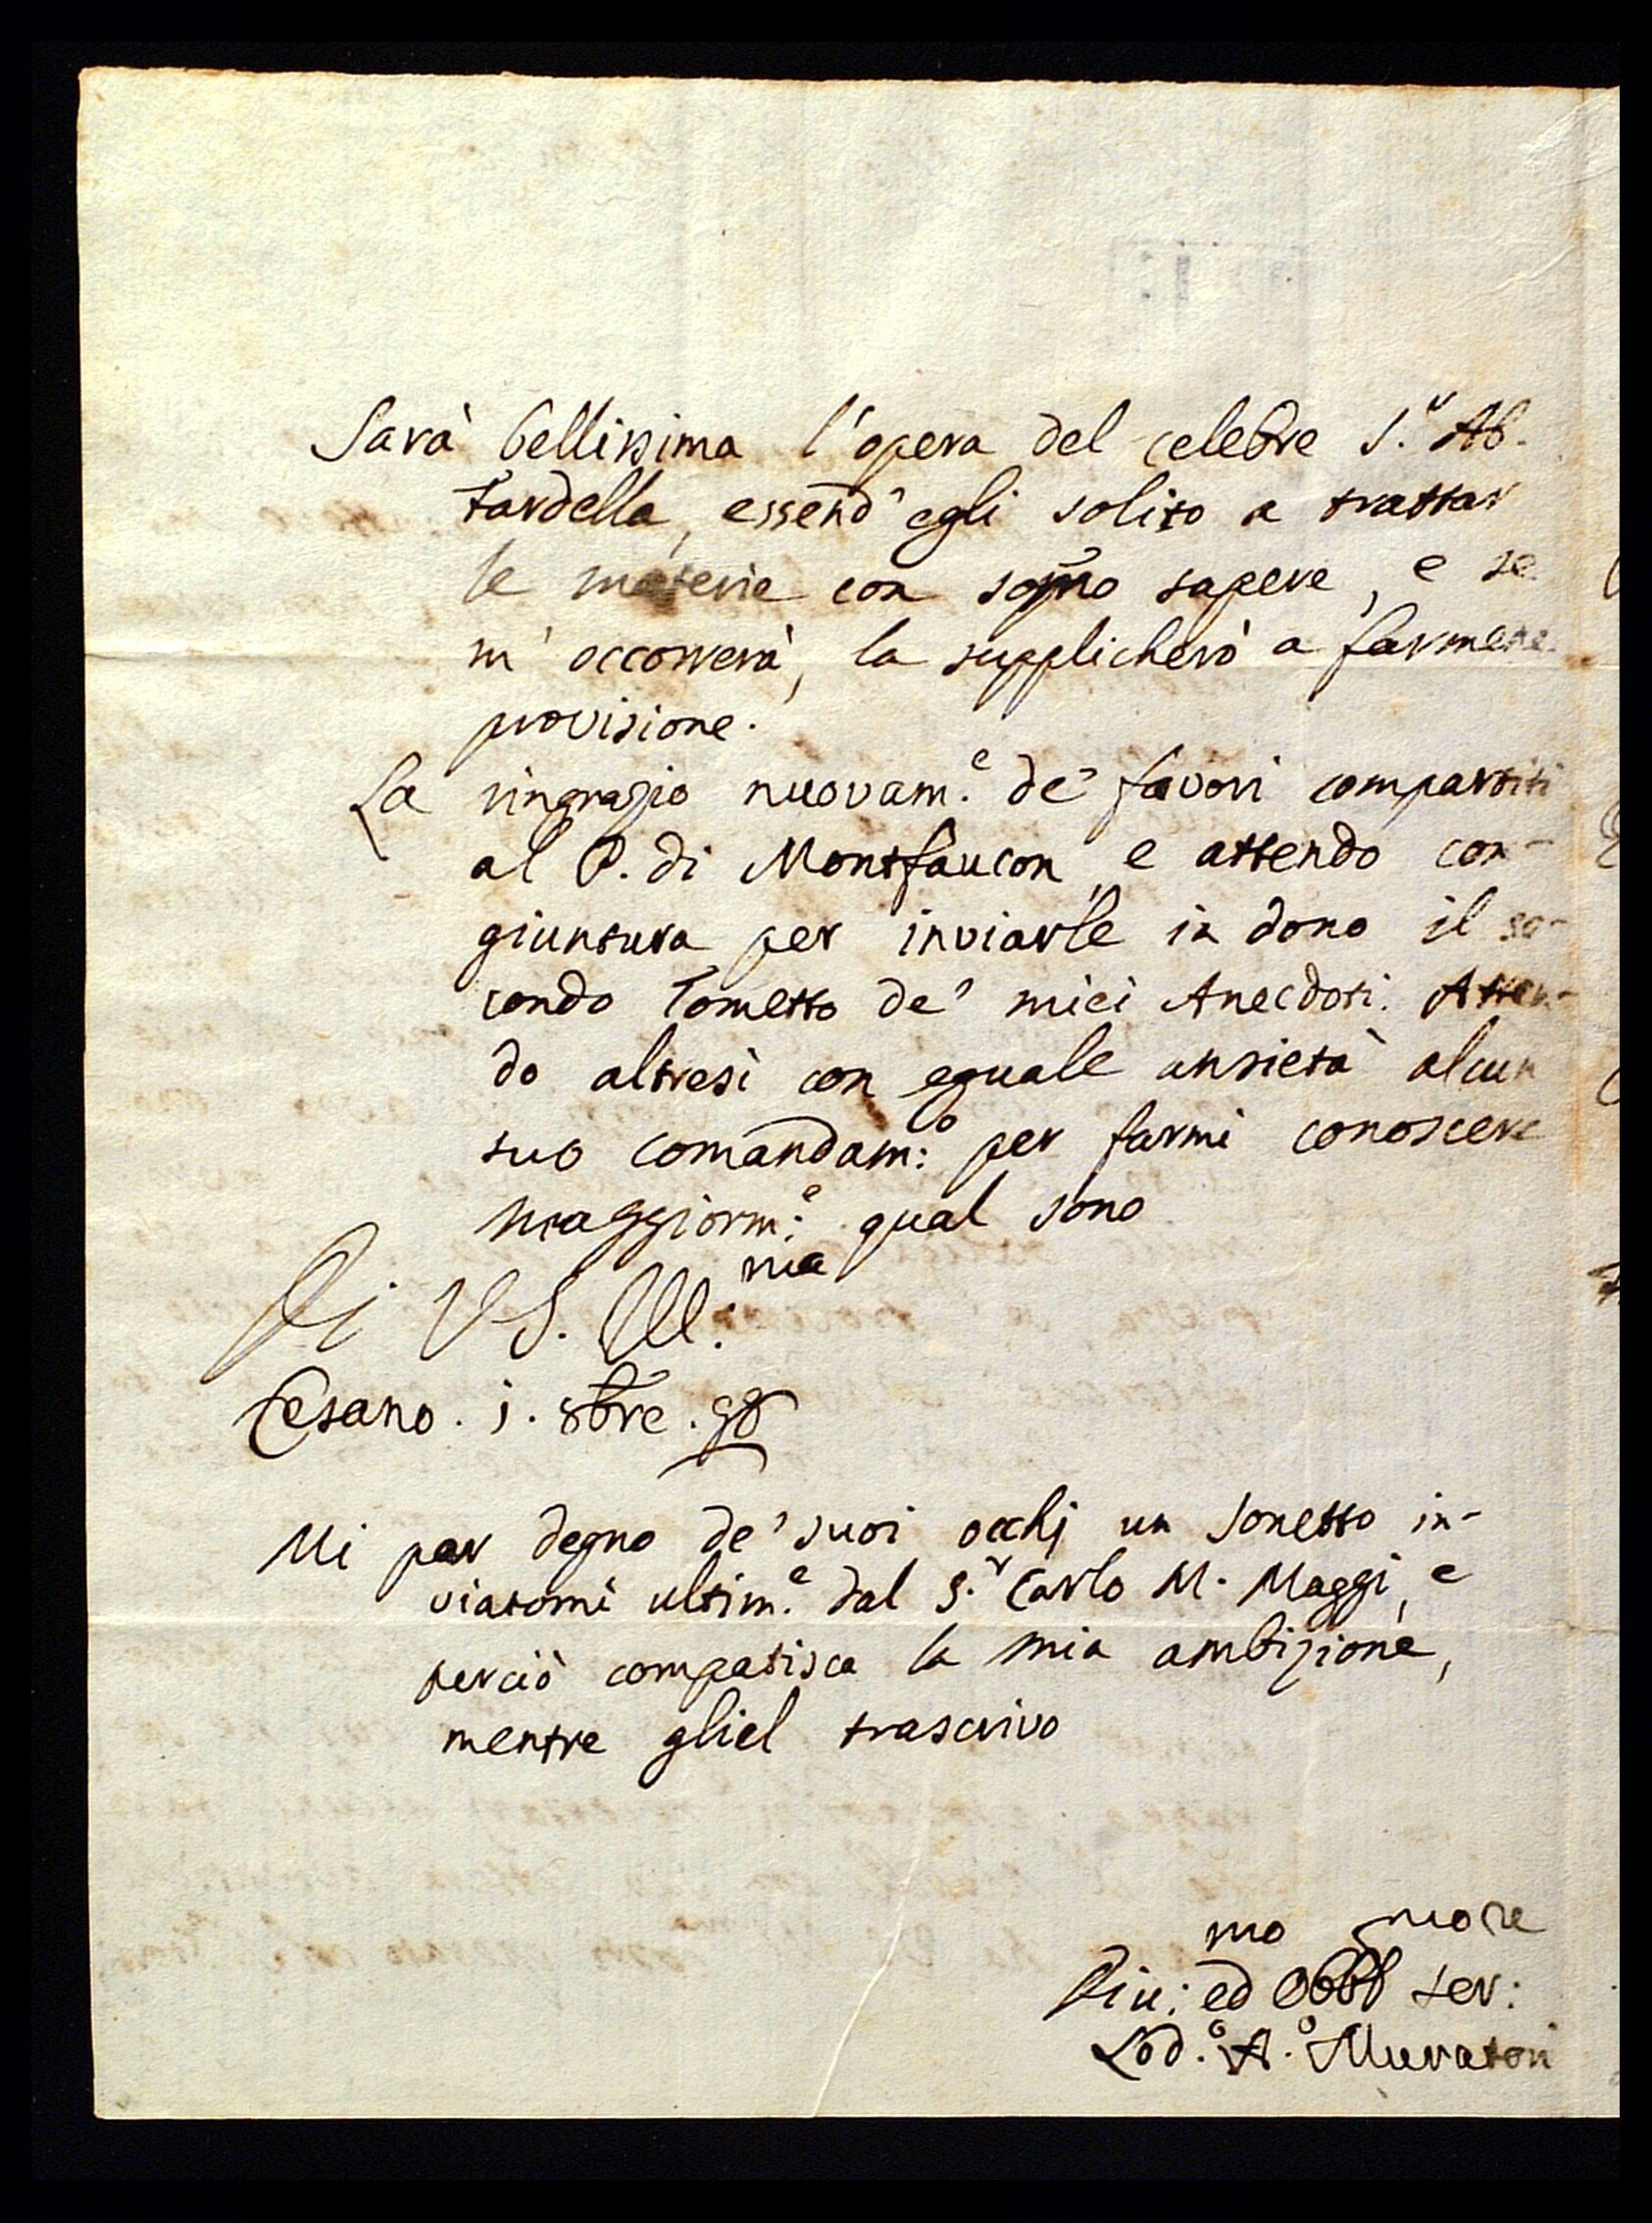 Sarà bellissima l'opera del celebre S.r Ab.
Fardella, essend' egli solito a trattar
le materie con sommo sapere, e se
m' occorrerà, la supplicherò a farmene
provisione.
La ringrazio nuovam.e de' favori compartiti
al P. di Montfaucon, e attendo con-
giuntura per inviarle in dono il se-
condo Tometto de' miei Anecdoti. Atten-
do altresì con eguale ansietà alcun
suo comandam:o per farmi conoscere
maggiorm:e qual sono
Di V S. Ill.ma
Cesano. i. 8bre. 98
Mi par degno de' suoi occhj un Sonetto in-
viatomi ultim.e dal S.r Carlo M. Maggi, e
perciò compatisca la mia ambizione,
mentre gliel trascrivo
mo
Div: ed Obb ser:
Lod.o A.o Muratori